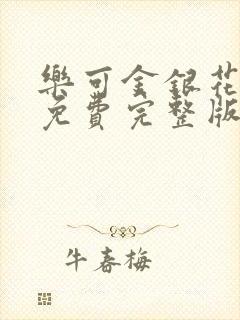 樂可金銀花
免費完整版
牛春梅